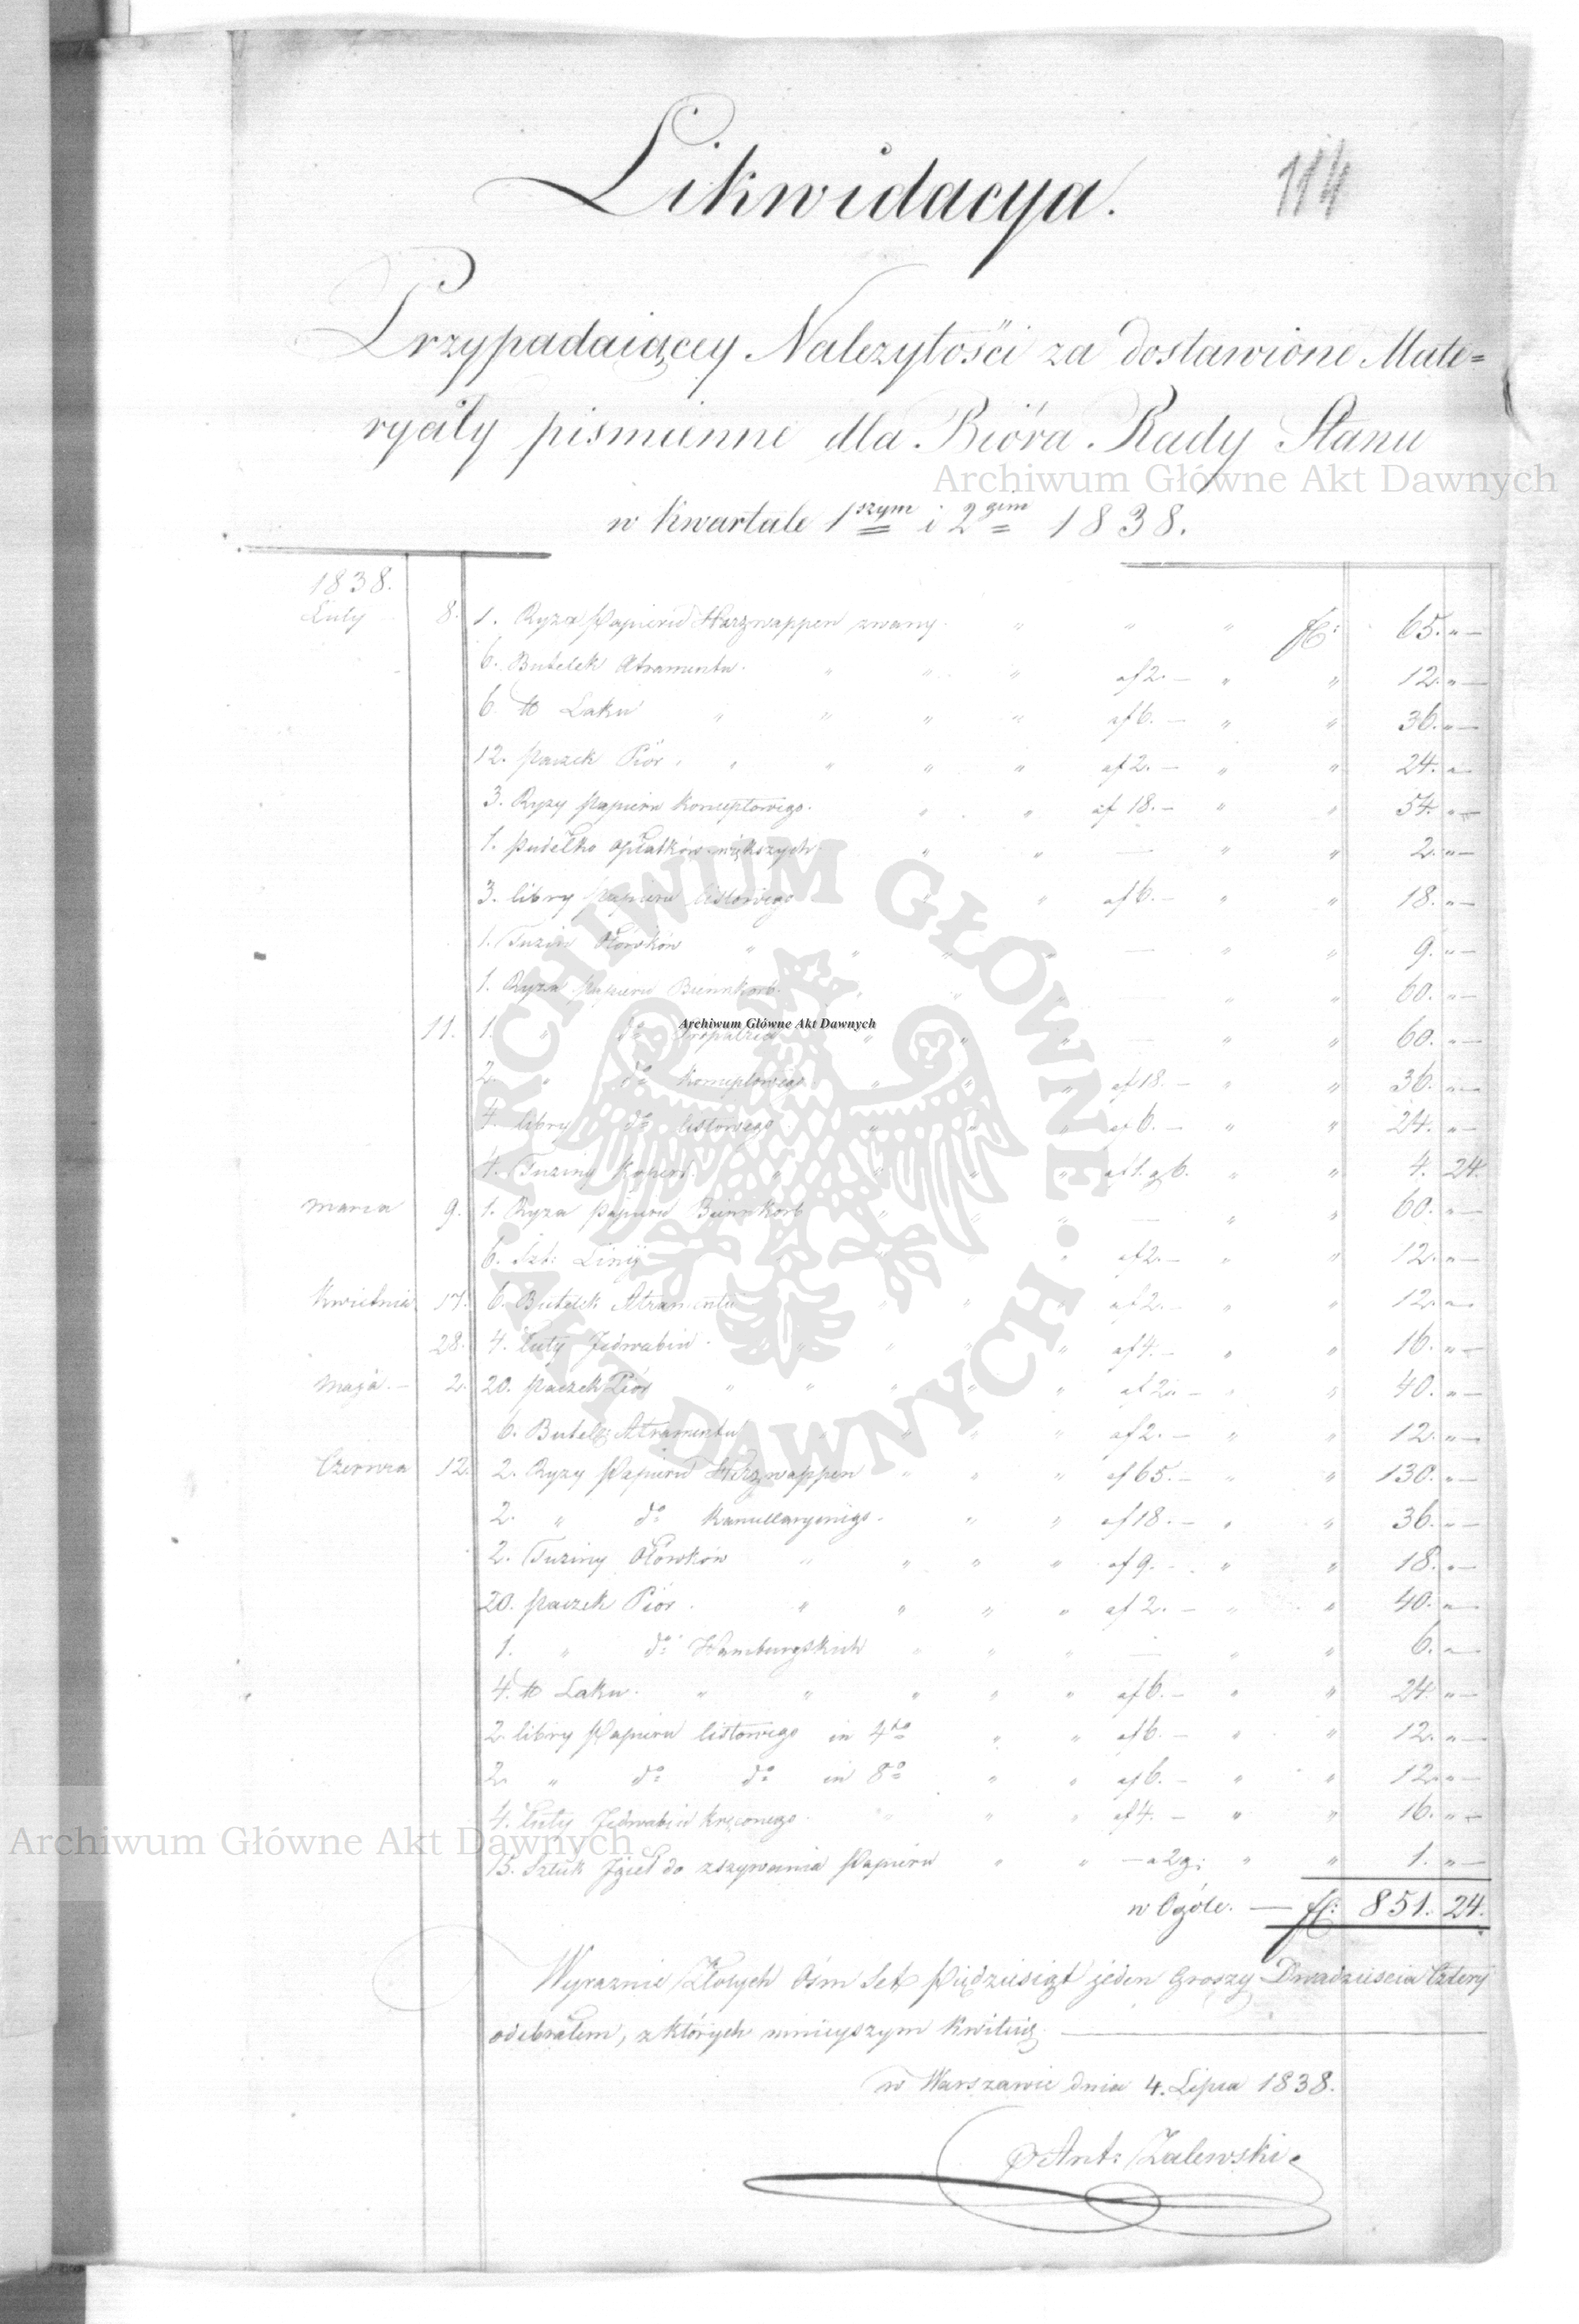 Likwidacya.
114
Przypadaiącey Należytości za dostawione Mate=
ryały pismienne dla Bióra Rady Stanu
w Kwartale 1szym i 2gim 1838.
1838.
Luty 8. 1. Ryza Papieru Harzwappen zwany " " " fl: 65. " —
6. Butelek Atramentu. " " " af 2. — " " 12. " —
6. ℔ Laku " " " " af 6. — " " 36. " —
12. paczek Piór " " " " " af 2. — " " 24. " —
3. Ryzy papieru konceptowego. " " af 18. — " " 54. " —
1. pudełko opłatków większych " " — " " 2. " —
3. libry papieru listowego " " af 6. — " " 18. " —
1. Tuzin Ołówków " " " " — " " 9. " —
1. Ryza papieru Biennkorb. " " " — " " 60. " —
11. 1. " do " " " — " " 60. " —
2. " do konceptowego " " " af 18. — " " 36. " —
4. libry do listowego " " " af 6. — " " 24. " —
4. Tuziny kopert. " " " " af 1. g 6. " " 4. 24.
Marca 9. 1. Ryza papieru Biennkorb " " " — " " 60. " —
6. Szt: Linij " " " af 2. — " " 12. " —
Kwietnia 17. 6. Butelek Atramentu " " " af 2. — " " 12. " —
28. 4. Łuty Jedwabiu. " " " " af 4. — " " 16. " —
Maja — 2. 20. paczek Piór " " " " " af 2. — " " 40. " —
6. Butelek Atramentu " " " af 2. — " " 12. " —
Czerwca 12. 2. Ryzy Papieru Harzwappen " " " af 65. — " " 130. " —
2. " do Kancellaryinego. " " af 18. — " " 36. " —
2. Tuziny Ołówków " " " " af 9. — " " 18. " —
20. paczek Piór. " " " " af 2. — " " 40. " —
1. " do Hamburgskich " " " — " " 6. " —
4. ℔ Laku. " " " " " af 6. — " " 24. " —
2. libry Papieru listowego in 4to " " af 6. — " " 12. " —
2. " do do in 8o " " af 6. — " " 12. " —
4. Łuty Jedwabiu kręconego. " " " af 4. — " " 16. " —
15. Sztuk Igieł do zszywania Papieru " " — a 2 g: " " 1. " —
w Ogóle. — fl: 851. 24.
Wyraznie Złotych Ośm Set Pięćdziesiąt jeden Groszy Dwadzieścia Cztery
odebrałem, z których ninieyszym kwituię. —
w Warszawie dnia 4. Lipca 1838.
Ant: Zalewski
Archiwum Główne Akt Dawnych
Archiwum Główne Akt Dawnych
Archiwum Główne Akt Dawnych
ARCHIWUM GŁÓWNE · AKT DAWNYCH ·